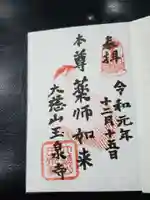 奉拝
令和元年
十二月十五日
本尊薬師如来
大慈山玉泉寺